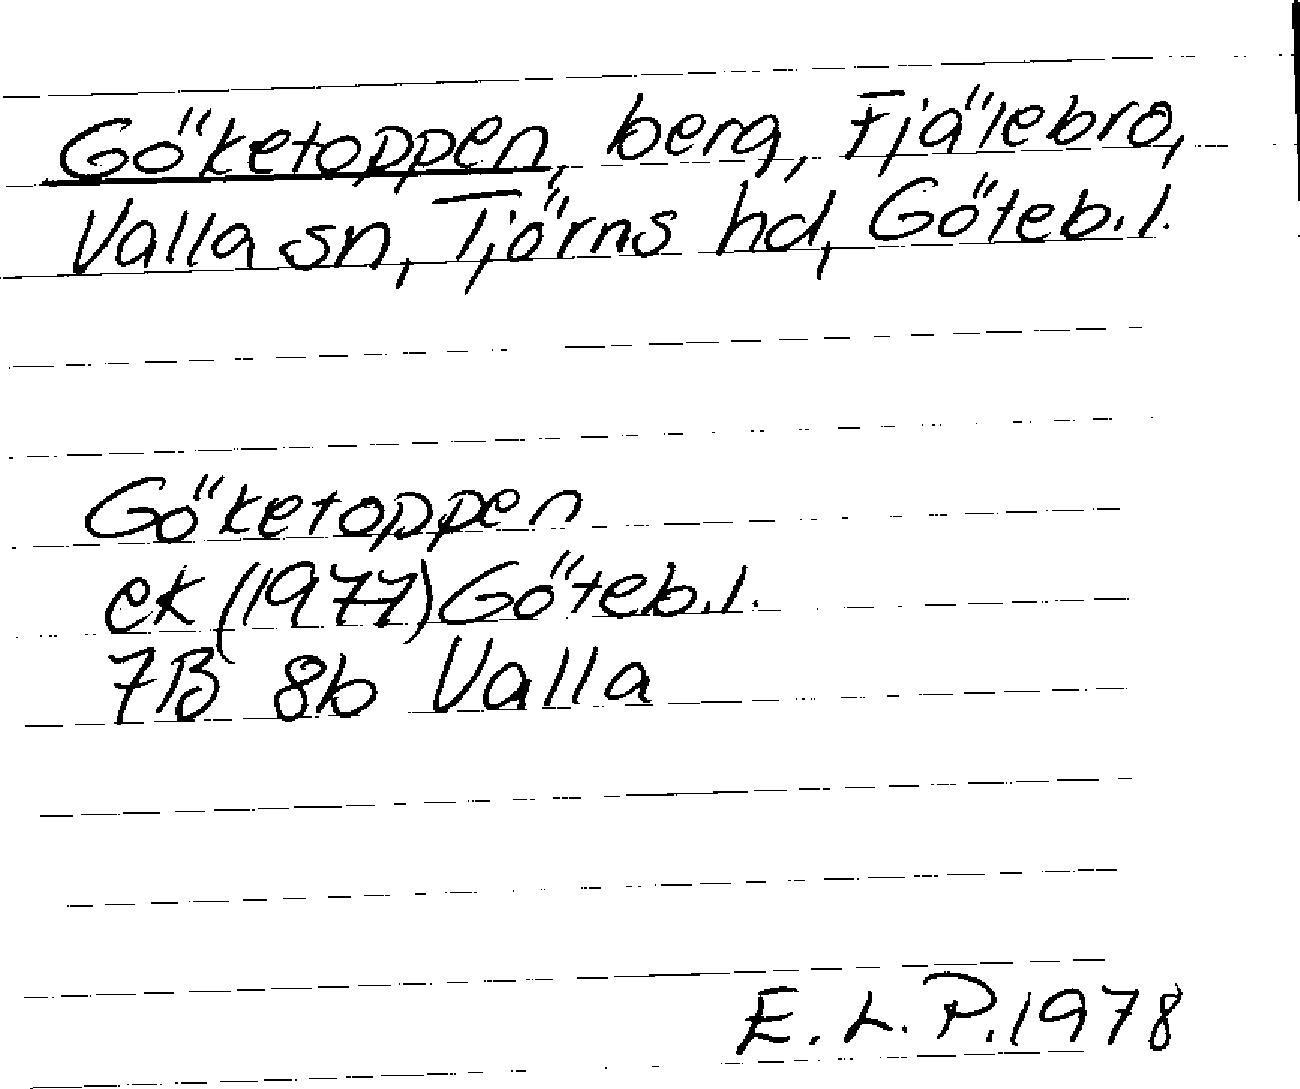 Göketoppen, berg, Fjälebro,
Valla sn, Tjörns hd, Göteb.l.
Göketoppen
ek (1977) Göteb.l.
7B 8b Valla
E.L.P. 1978